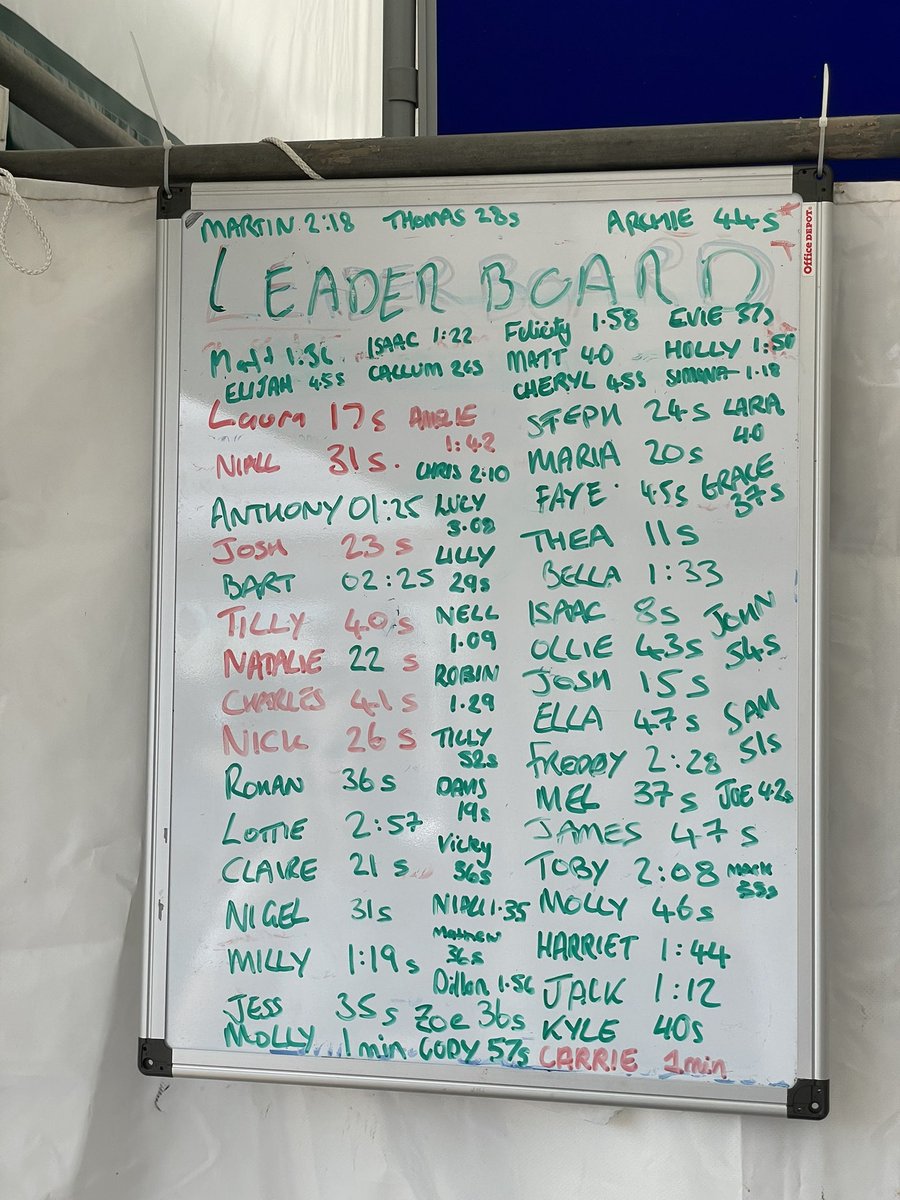 MARTIN 2:18 THOMAS 28s ARCHIE 44s
Office DEPOT
LEADER BOARD
Felicity 1.58 EVIE 37s
Matt 1:36 ISAAC 1:22 MATT 40 HOLLY 1:50
ELIJAH 45s CALLUM 26s CHERYL 45s SIMONA 1.18
Laura 17s AMELIE 1:42
NIALL 31s. CHRIS 2:10
ANTHONY 01:25 LUCY 3.08
JOSH 23s LILLY 29s
BART 02:25
TILLY 40s NELL 1.09
NATALIE 22s ROBIN 1.29
CHARLES 41s
NICK 26s TILLY 52s
ROHAN 36s 19s
LOTTIE 2:57 Vicky 56s
CLAIRE 21s
NIGEL 31s NIALL 1.35
MILLY 1:19s 36s
Dillon 1.56
JESS 35s Zoe 36s
MOLLY 1min CODY 57s
STEPH 24s LARA 40
MARIA 20s
FAYE 45s GRACE 37s
THEA 11s
BELLA 1:33
ISAAC 8s JOHN 54s
OLLIE 43s
JOSH 15s
ELLA 47s SAM 51s
FREDDY 2:28
MEL 37s JOE 42s
JAMES 47s
TOBY 2:08 MARK 55s
MOLLY 46s
HARRIET 1:44
JACK 1:12
KYLE 40s
CARRIE 1min